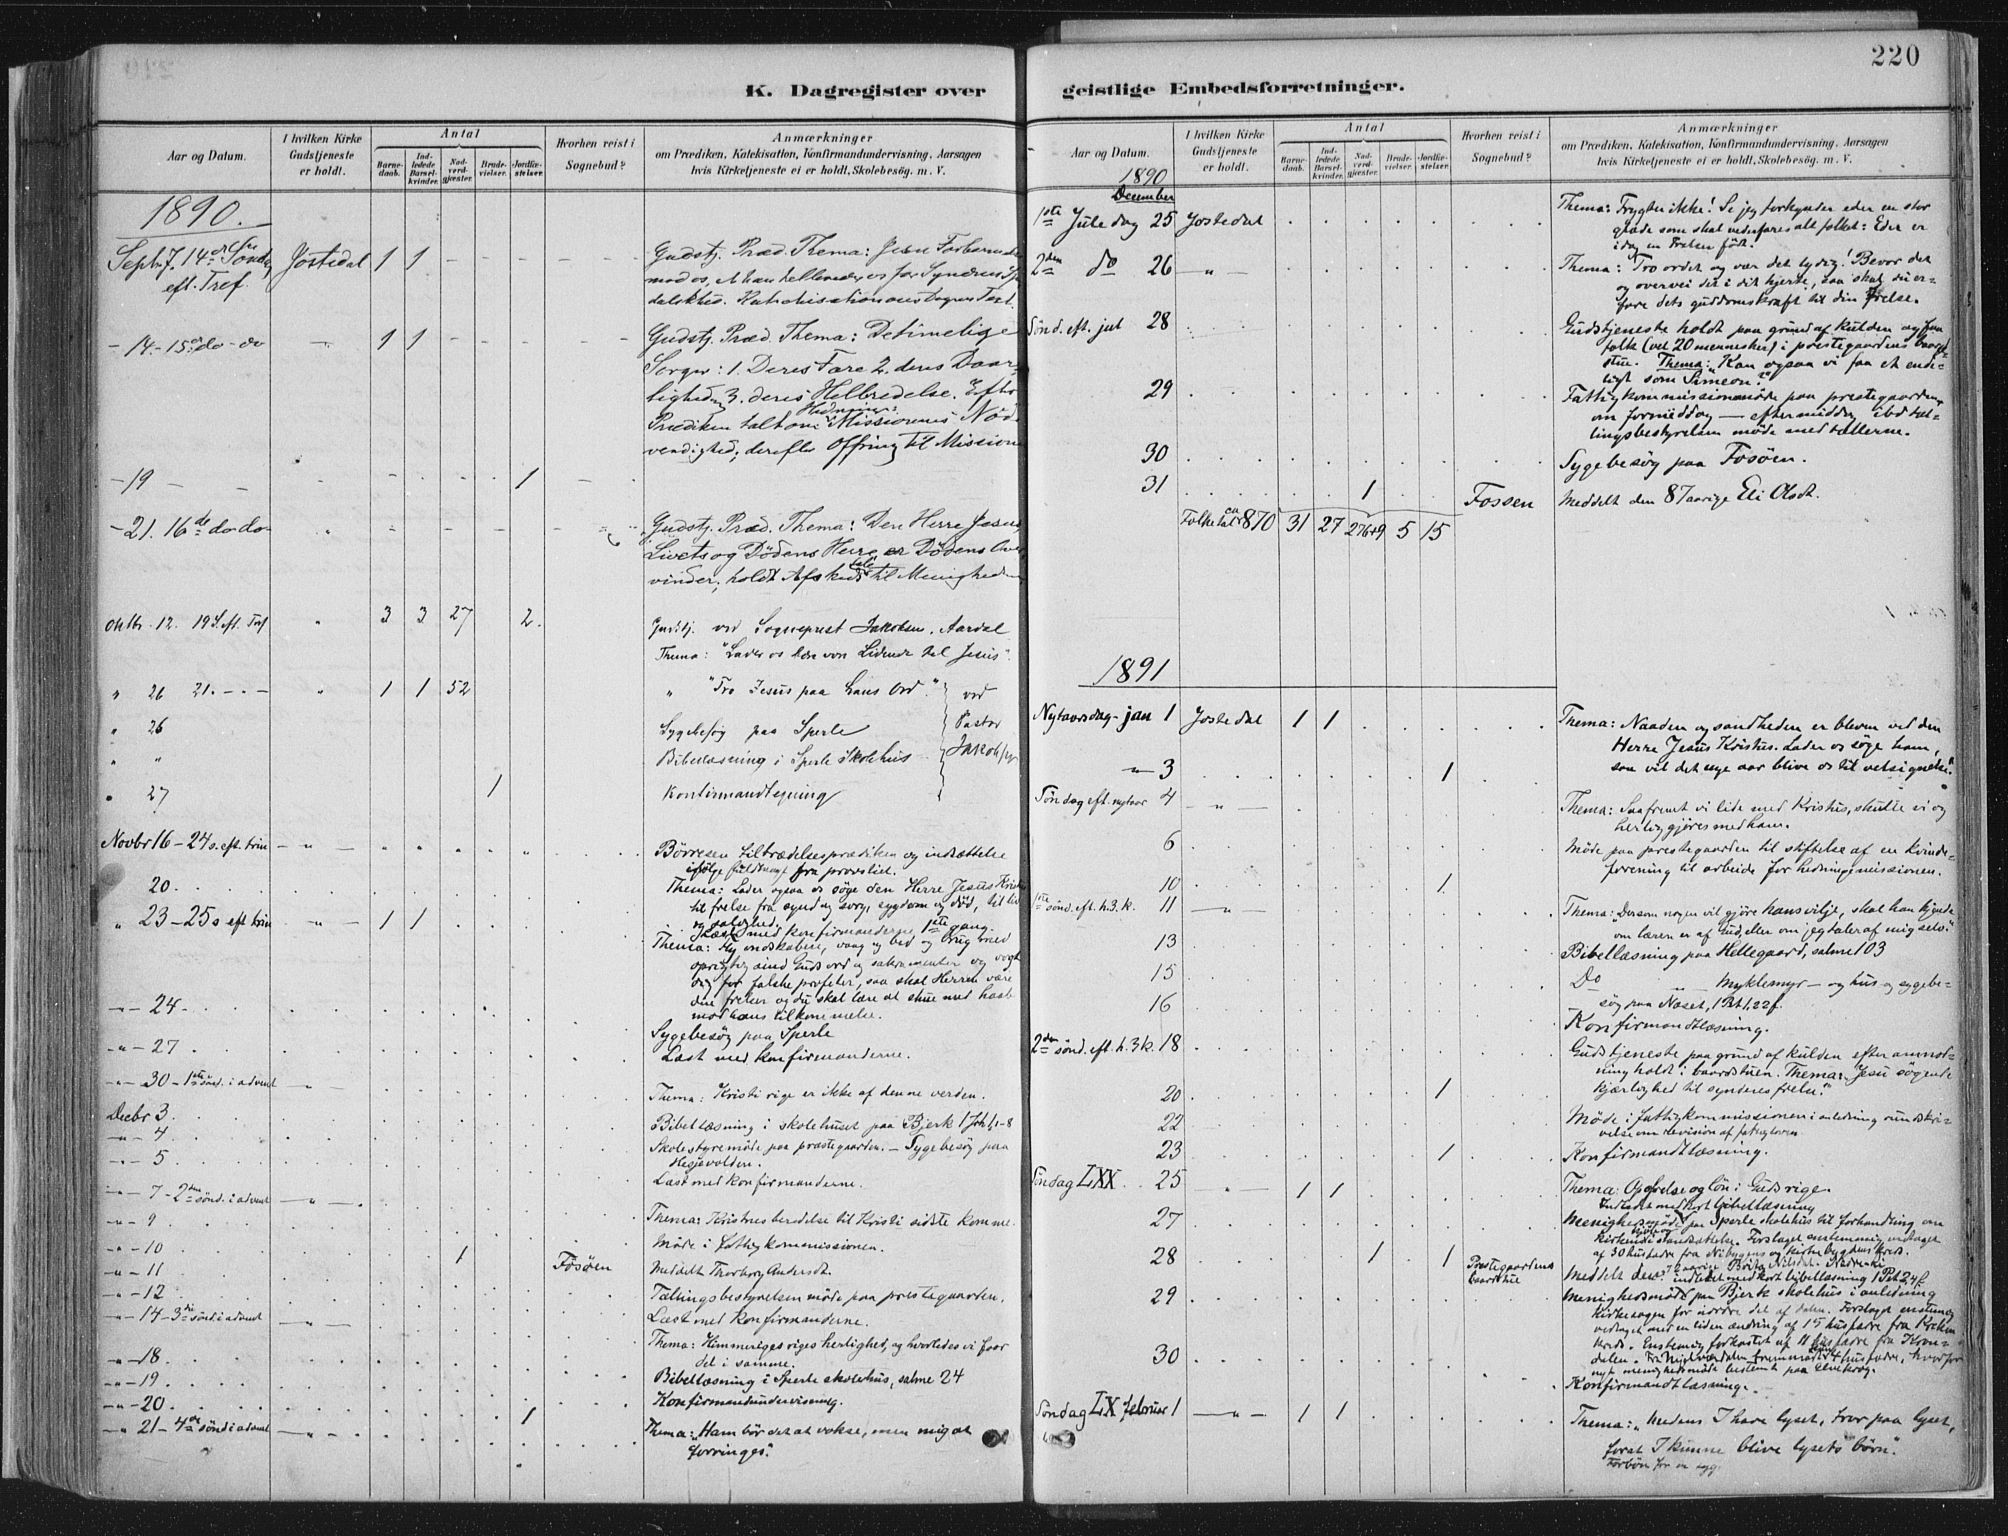 220
K. Dagregister over
Aar og Datum.
I hvilken Kirke Gudstjeneste er holdt.
Antal
Barnedaab.
Indledede Barselkvinder.
Nadverdgjæster.
Brudevielser.
Jordfæstelser.
Hvorhen reist i Sognebud?
Anmærkninger
om Prædiken, Katekisation, Konfirmandundervisning, Aarsagen
hvis Kirketjeneste ei er holdt, Skolebesøg. m. V.
1890.
Septr. 7. 14de Søndag Jostedal 1 1
eft. Tref.
Gudstj. Præd. Thema: Jesu
- 14. - 15de do - do 1 1 Gudstj. Præd. Thema: De timelige
Sorger: 1. Deres Fare 2. deres Daar-
lighed og 3. deres Helbredelse. Efter
Prædiken talt om Missionens Nød-
vendighed; derefter Offring til Missionen
- 19 - - 1
- 21. 16de do do Gudstj. Præd. Thema: Den Herre Jesus
Livets og Dødens Herre er Dødens Over-
vinder; holdt Afskedstale til Menigheden
Oktbr. 12. 19 S. eft. Tref " 3 3 27 2. Gudstj. ved Sogneprest Jakobsen, Aardal
Thema: "Lader os lære von Lidende til Jesus".
" 26 21. - - - " 1 1 52 " "Tro Jesus paa hans Ord." ved
" 26 Sygebesøg paa Sperle Pastor
" " Bibellæsning i Sperle Skolehus Jakobsen
" 27 1 Konfirmandlæsning
Novbr 16 - 24 s. eft. trin - " - Børresen tiltrædelsesprædiken og indsættelse
ifølge fuldmagt fra provstiet.
Thema: Lader ogsaa os søge den Herre Jesus Krist
til frelse fra synd og sorg, sygdom og død, til liv
og salighed.
20. Læst med konfirmanderne 1ste gang.
" 23 - 25 s eft trin - " - 1 1 Thema: Fly ondskaben, vaag og bed og brug med
oprigtig sind Guds ord og sakramenter og vogt
dig for falske profeter, saa skal Herren være
din frelser og du skal lære at stue med haab
mod hans tilkommelse.
- " - 24. Sygebesøg paa Sperle
- " - 27 Læst med konfirmanderne.
- " - 30 - 1ste sönd. i advent - " - Thema: Kristi rige er ikke af denne verden.
Decbr 3. Bibellæsning i skolehuset paa Bjerk 1 Joh 1,1-8
- " - 4 Skolestyremøde paa præstegaarden. - Sygebesøg paa
Hesjevolden.
- " - 5 Læst med konfirmanderne.
- " - 7 - 2den sönd. i advent - " - Thema: Kristnes beredelse til Kristi sidste komme.
- " - 9 Møde i fattigkommissionen.
- " - 10 1 Fosøen Meddelt Thorborg Andersdt.
- " - 11 Tællingsbestyrelsen møde paa prestegaarden.
- " - 12 Læst med konfirmanderne.
- " - 14 - 3die sönd i advent - " - Thema: Himmeriges riges herlighed, og hvorledes vi faar
del i samme.
- " - 18. Bibellæsning i Sperle skolehus, salme 24
- " - 19
- " - 20 Konfirmandundervisning.
- " - 21 - 4de sönd i advent - " - 1 Thema: "Ham bör det at vokse, men mig at
forringes".
geistlige Embedsforretninger.
Aar og Datum.
I hvilken Kirke Gudstjeneste er holdt.
Antal
Barnedaab.
Indledede Barselkvinder.
Nadverdgjæster.
Brudevielser.
Jordfæstelser.
Hvorhen reist i Sognebud?
Anmærkninger
om Prædiken, Katekisation, Konfirmandundervisning, Aarsagen
hvis Kirketjeneste ei er holdt, Skolebesøg. m. V.
1890
December
1ste Juledag 25 Jostedal Thema: Frygter ikke! Se jeg forkynder eder en stor
glæde som skal vederfares alt folket: Eder er
idag en Frelser født.
2den do 26 - " - Thema: Tro ordet og vær det lydig! Bevar det
og overvei det i dit hjerte, saa skal du er-
fare dets guddomskraft til din frelse.
Sönd. eft. jul 28 Gudstjeneste holdt paa grund af kulden og faa
folk (vel 20 mennesker) i prestegaardens baard-
stue. Thema: "Kan ogsaa vi faa et ende-
ligt som Simeon?"
29 Fattigkommissionsmøde paa prestegaarden
om formiddag - eftermiddag ibd tæl-
lingsbestyrelsen møde med tællerne.
30 Sygebesøg paa Fosøen.
31 1 Fossen Meddelt den 87 aarige Eli Olsdt.
Folketal ca 870 31 27 276+9 5 15
1891
Nytaarsdag - jan 1 Jostedal 1 1 Thema: Naaden og sandheden er bleven ved den
Herre Jesus Kristus. Lader os søge ham,
saa vil det nye aar blive os til velsignelse."
- " - 3 1
Söndag eft. nytaar 4 - " - Thema: Saafremt vi lide med Kristus, skulle vi og
herliggjøres med ham.
6 Møde paa prestegaarden til stiftelse af en kvinde-
forening til arbeide for hedningemissionen.
10 1
1ste sönd. eft. h. 3. k. 11 - " - Thema: "Dersom nogen vil gjøre hans vilje, skal han kjende
om læren er af Gud, eller om jeg taler af mig selv."
13 Bibellæsning paa Hellegaard, salme 103
15 Do " Myklemyr - og hus og sygebe-
søg paa Næset, 1 Pt 1,22 f.
16 Konfirmandlæsning.
2den sönd. eft. h. 3 k. 18 Gudstjeneste paa grund af kulden efter anmod-
ning holdt i baardstuen. Thema: Jesu søgende
kjærlighed til synderes frelse".
20 1
22 Møde i fattigkommissionen i anledning rundskri-
velse om revision af fattigloven
23 1 Konfirmandlæsning.
Söndag LXX 25 - " - 1 1 Thema: Opofrelse og løn i Guds rige.
Indledet med kort bibellæsning
27 Menighedsmöde paa Sperle skolehus til forhandling om
af 30 husfædre fra
28 1 1 Prestegaardens baardstue Meddelt den aarige Brita Nilsdt.
indledet med kort bibellæsning 1 Pet 2,4 f
29 Menighedsmöde paa Bjerk skolehus i anledning
kirkesagen for nordre del af dalen. Forslaget enstemig
vedtaget med en liden ændring af 15 husfædre fra
kreds. Enstemig forkastet af 11 husfædre fra Kron-
dalen.
30 Konfirmandlæsning.
Söndag LX februar 1 - " - 1 1 Thema: "Medens I have lyset, tror paa lyset,
forat I kunne blive lysets børn".
Forbøn for en syg.